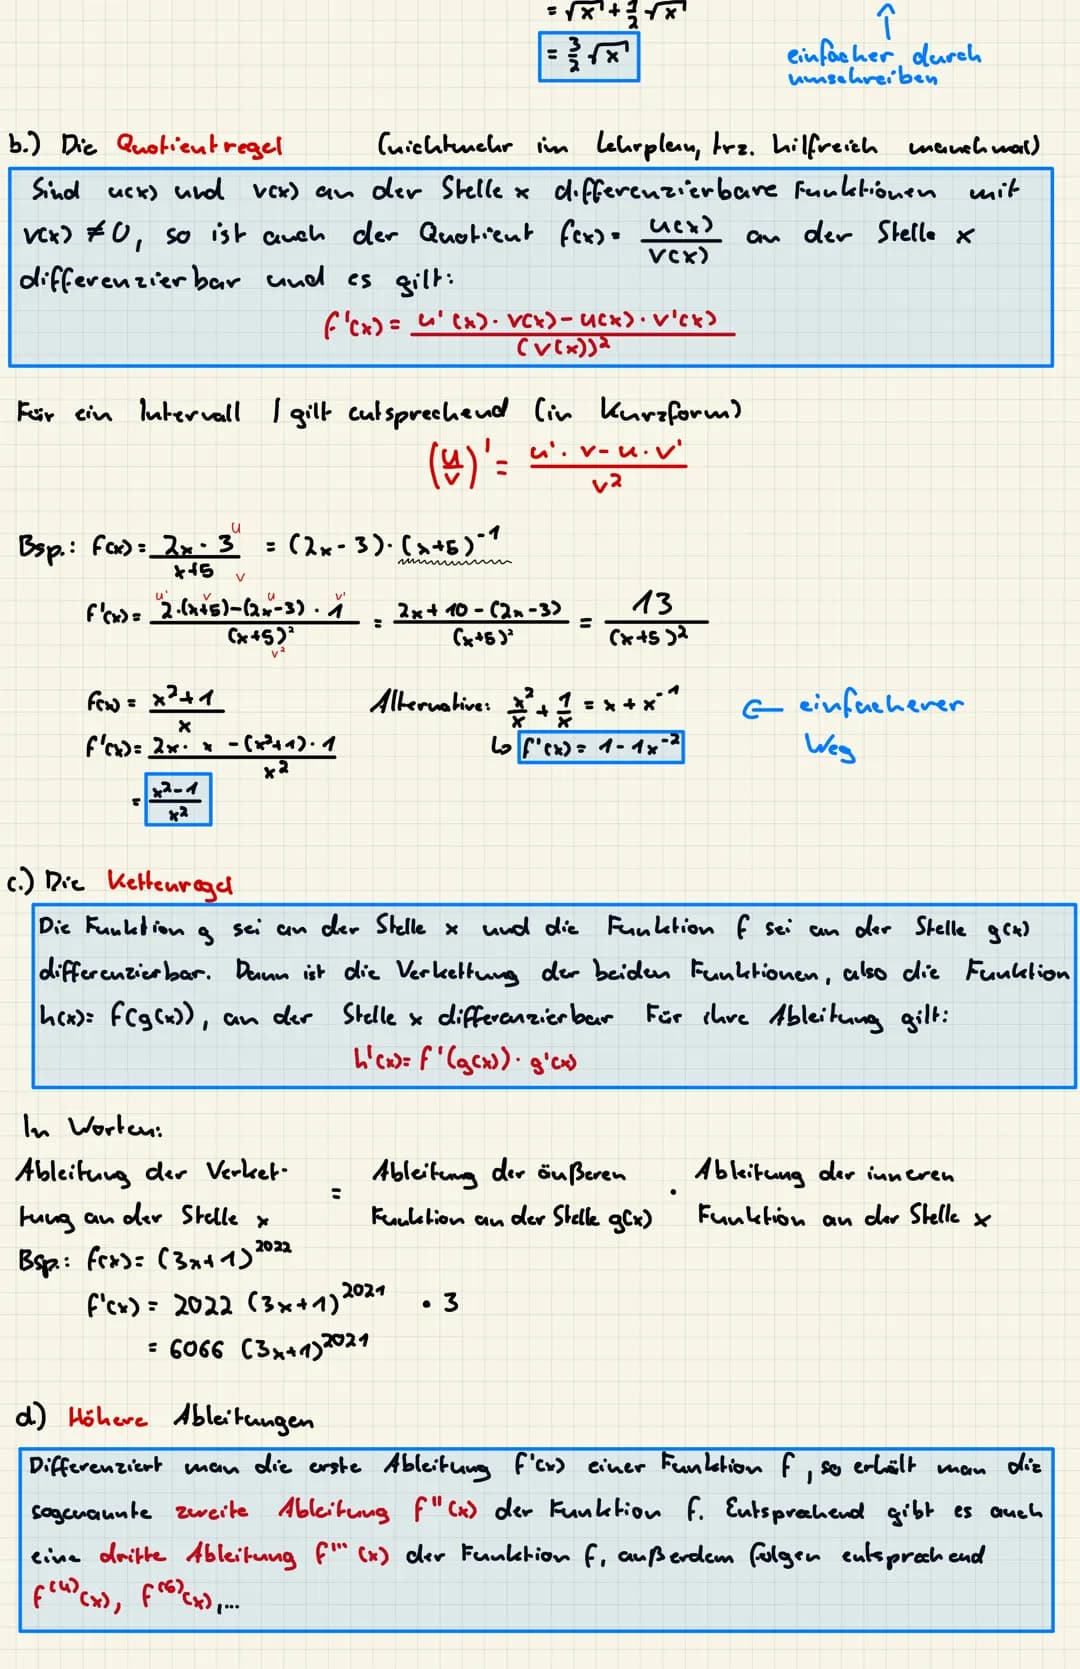 = √x + 1/2 √x
= 3/2 √x
einfacher durch
umschreiben
b.) Die Quotientregel (nichtmehr im Lehrplan, trz. hilfreich manchmal)
Sind u(x) und v(x) an der Stelle x differenzierbare Funktionen mit
v(x) ≠ 0, so ist auch der Quotient f(x) = u(x)/v(x) an der Stelle x
differenzierbar und es gilt:
f'(x) = u'(x) · v(x) - u(x) · v'(x) / (v(x))²
Für ein Intervall I gilt entsprechend (in Kurzform)
(u/v)' = u' · v - u · v' / v²
Bsp.: f(x) = 2x · 3 u / x+5 v = (2x - 3) · (x+5)⁻¹
u' v u v'
f'(x) = 2·(x+5)-(2x-3) · 1 / (x+5)² = 2x + 10 - (2x-3) / (x+5)² = 13 / (x+5)²
v²
f(x) = x²+1 / x Alternative: x²/x + 1/x = x + x⁻¹ ← einfacherer
f'(x) = 2x · x - (x²+1) · 1 / x² ↳ f'(x) = 1 - 1x⁻² Weg
= x²-1 / x²
c.) Die Kettenregel
Die Funktion g sei an der Stelle x und die Funktion f sei an der Stelle g(x)
differenzierbar. Dann ist die Verkettung der beiden Funktionen, also die Funktion
h(x) = f(g(x)), an der Stelle x differenzierbar Für ihre Ableitung gilt:
h'(x) = f'(g(x)) · g'(x)
In Worten:
Ableitung der Verket- = Ableitung der äußeren · Ableitung der inneren
tung an der Stelle x Funktion an der Stelle g(x) Funktion an der Stelle x
Bsp.: f(x) = (3x+1)²⁰²²
f'(x) = 2022 (3x+1)²⁰²¹ · 3
= 6066 (3x+1)²⁰²¹
d.) Höhere Ableitungen
Differenziert man die erste Ableitung f'(x) einer Funktion f, so erhält man die
sogenannte zweite Ableitung f''(x) der Funktion f. Entsprechend gibt es auch
eine dritte Ableitung f'''(x) der Funktion f, außerdem folgen entsprechend
f⁽⁴⁾(x), f⁽⁵⁾(x),...